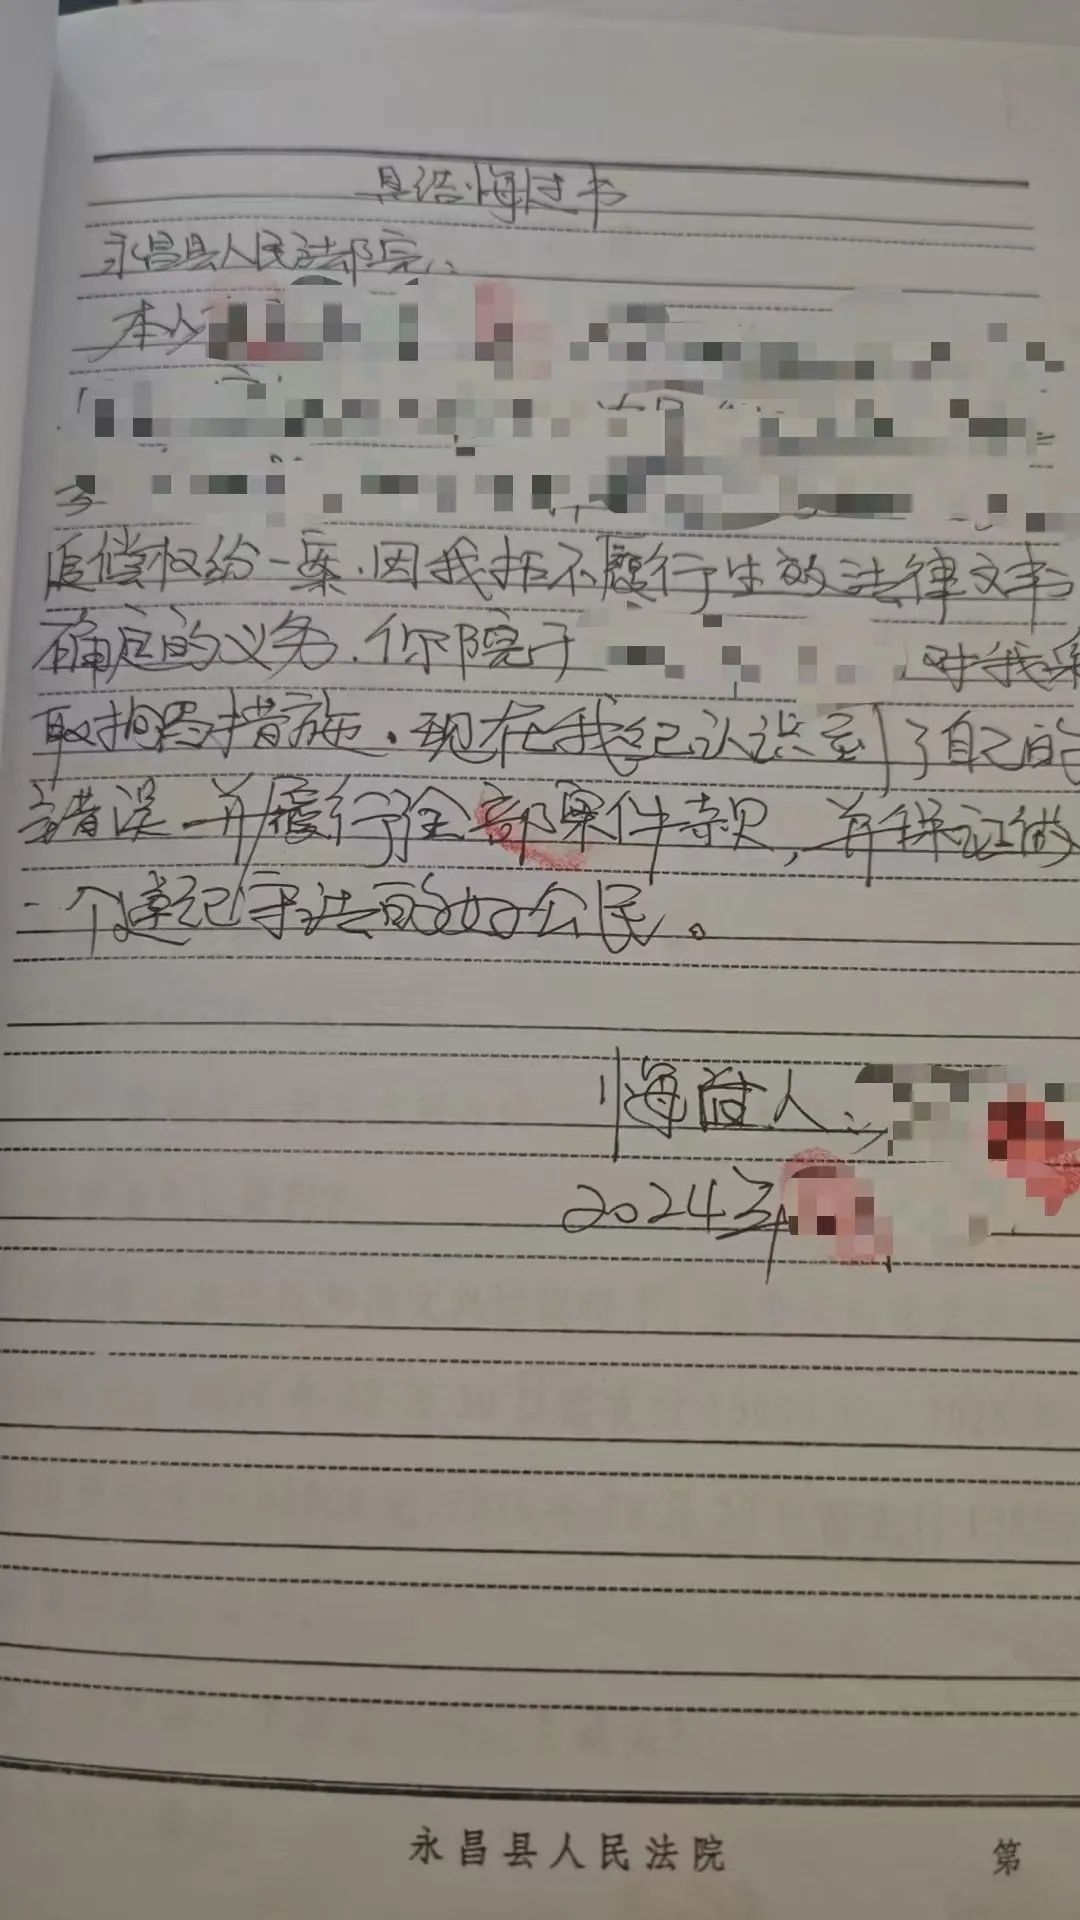 具结悔过书
永昌县人民法院：
本人
追偿权纷一案，因我拒不履行生效法律文书
确定的义务，你院于 对我采
取拘留措施。现在我已认识到了自己的
错误，并履行了全部案件款，并保证做
一个遵纪守法的好公民。
悔过人：
2024年
永昌县人民法院 第